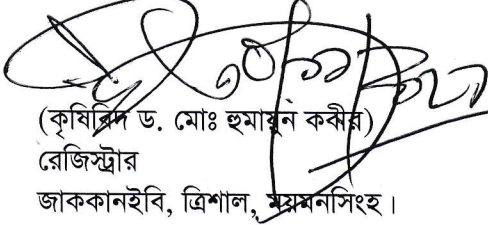 (কৃষিবিদ ড. মোঃ হুমায়ুন কবীর)
রেজিস্ট্রার
জাককানইবি, ত্রিশাল, ময়মনসিংহ।